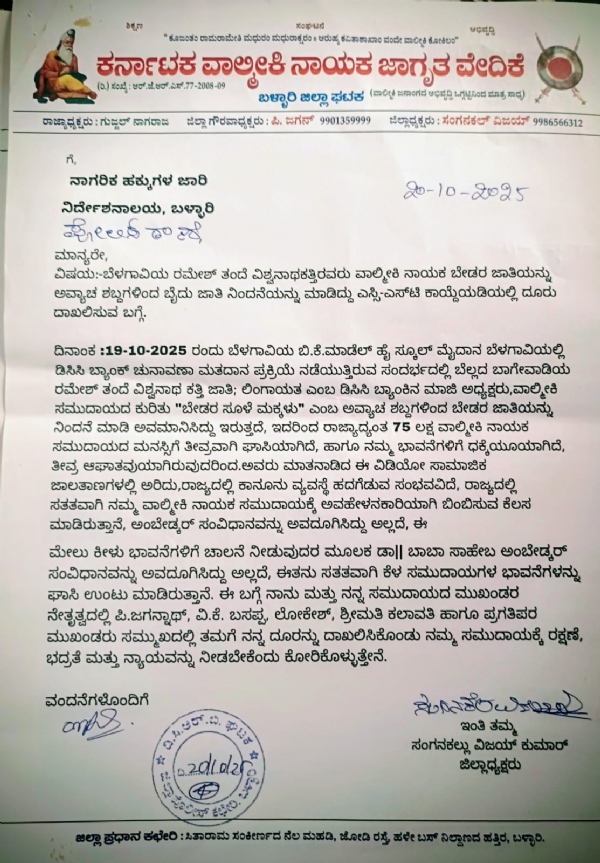 ಶಿಕ್ಷಣ ಸಂಘಟನೆ ಅಭಿವೃದ್ಧಿ
"ಕೂಜಂತಂ ರಾಮರಾಮೇತಿ ಮಧುರಂ ಮಧುರಾಕ್ಷರಂ। ಆರುಹ್ಯ ಕವಿತಾಶಾಖಾಂ ವಂದೇ ವಾಲ್ಮೀಕಿ ಕೋಕಿಲಂ"
ಕರ್ನಾಟಕ ವಾಲ್ಮೀಕಿ ನಾಯಕ ಜಾಗೃತ ವೇದಿಕೆ
(ರಿ.) ಸಂಖ್ಯೆ : ಆರ್.ಜಿ.ಆರ್.ಎಸ್.77-2008-09
ಬಳ್ಳಾರಿ ಜಿಲ್ಲಾ ಘಟಕ (ವಾಲ್ಮೀಕಿ ಜನಾಂಗದ ಅಭಿವೃದ್ಧಿ ಒಗ್ಗಟ್ಟಿನಿಂದ ಮಾತ್ರ ಸಾಧ್ಯ)
ರಾಜ್ಯಾಧ್ಯಕ್ಷರು : ಗುಜ್ಜಲ್ ನಾಗರಾಜ ಜಿಲ್ಲಾ ಗೌರವಾಧ್ಯಕ್ಷರು : ಪಿ. ಜಗನ್ 9901359999 ಜಿಲ್ಲಾಧ್ಯಕ್ಷರು : ಸಂಗನಕಲ್ ವಿಜಯ್ 9986566312
ಗೆ,
ನಾಗರಿಕ ಹಕ್ಕುಗಳ ಜಾರಿ
20-10-2025
ನಿರ್ದೇಶನಾಲಯ, ಬಳ್ಳಾರಿ
ಮಾನ್ಯರೇ,
ವಿಷಯ:-ಬೆಳಗಾವಿಯ ರಮೇಶ್ ತಂದೆ ವಿಶ್ವನಾಥಕತ್ತಿರವರು ವಾಲ್ಮೀಕಿ ನಾಯಕ ಬೇಡರ ಜಾತಿಯನ್ನು
ಅವ್ಯಾಚ ಶಬ್ದಗಳಿಂದ ಬೈದು ಜಾತಿ ನಿಂದನೆಯನ್ನು ಮಾಡಿದ್ದು ಎಸ್ಸಿ-ಎಸ್‌ಟಿ ಕಾಯ್ದೆಯಡಿಯಲ್ಲಿ ದೂರು
ದಾಖಲಿಸುವ ಬಗ್ಗೆ.
ದಿನಾಂಕ :19-10-2025 ರಂದು ಬೆಳಗಾವಿಯ ಬಿ.ಕೆ.ಮಾಡೆಲ್ ಹೈ ಸ್ಕೂಲ್ ಮೈದಾನ ಬೆಳಗಾವಿಯಲ್ಲಿ
ಡಿಸಿಸಿ ಬ್ಯಾಂಕ್ ಚುನಾವಣಾ ಮತದಾನ ಪ್ರಕ್ರಿಯೆ ನಡೆಯುತ್ತಿರುವ ಸಂದರ್ಭದಲ್ಲಿ ಬೆಲ್ಲದ ಬಾಗೇವಾಡಿಯ
ರಮೇಶ್ ತಂದೆ ವಿಶ್ವನಾಥ ಕತ್ತಿ ಜಾತಿ; ಲಿಂಗಾಯತ ಎಂಬ ಡಿಸಿಸಿ ಬ್ಯಾಂಕಿನ ಮಾಜಿ ಅಧ್ಯಕ್ಷರು,ವಾಲ್ಮೀಕಿ
ಸಮುದಾಯದ ಕುರಿತು "ಬೇಡರ ಸೂಳೆ ಮಕ್ಕಳು" ಎಂಬ ಅವ್ಯಾಚ ಶಬ್ದಗಳಿಂದ ಬೇಡರ ಜಾತಿಯನ್ನು
ನಿಂದನೆ ಮಾಡಿ ಅವಮಾನಿಸಿದ್ದು ಇರುತ್ತದೆ, ಇದರಿಂದ ರಾಜ್ಯಾದ್ಯಂತ 75 ಲಕ್ಷ ವಾಲ್ಮೀಕಿ ನಾಯಕ
ಸಮುದಾಯದ ಮನಸ್ಸಿಗೆ ತೀವ್ರವಾಗಿ ಘಾಸಿಯಾಗಿದೆ, ಹಾಗೂ ನಮ್ಮ ಭಾವನೆಗಳಿಗೆ ಧಕ್ಕೆಯೂಯಾಗಿದೆ,
ತೀವ್ರ ಆಘಾತವುಯಾಗಿರುವುದರಿಂದ.ಅವರು ಮಾತನಾಡಿದ ಈ ವಿಡಿಯೋ ಸಾಮಾಜಿಕ
ಜಾಲತಾಣಗಳಲ್ಲಿ ಅರಿದು,ರಾಜ್ಯದಲ್ಲಿ ಕಾನೂನು ವ್ಯವಸ್ಥೆ ಹದಗೆಡುವ ಸಂಭವವಿದೆ, ರಾಜ್ಯದಲ್ಲಿ
ಸತತವಾಗಿ ನಮ್ಮ ವಾಲ್ಮೀಕಿ ನಾಯಕ ಸಮುದಾಯಕ್ಕೆ ಅವಹೇಳನಕಾರಿಯಾಗಿ ಬಿಂಬಿಸುವ ಕೆಲಸ
ಮಾಡಿರುತ್ತಾನೆ, ಅಂಬೇಡ್ಕರ್ ಸಂವಿಧಾನವನ್ನು ಅವದೂಗಿಸಿದ್ದು ಅಲ್ಲದೆ, ಈ
ಮೇಲು ಕೀಳು ಭಾವನೆಗಳಿಗೆ ಚಾಲನೆ ನೀಡುವುದರ ಮೂಲಕ ಡಾ|| ಬಾಬಾ ಸಾಹೇಬ ಅಂಬೇಡ್ಕರ್
ಸಂವಿಧಾನವನ್ನು ಅವದೂಗಿಸಿದ್ದು ಅಲ್ಲದೆ, ಈತನು ಸತತವಾಗಿ ಕೆಳ ಸಮುದಾಯಗಳ ಭಾವನೆಗಳನ್ನು
ಘಾಸಿ ಉಂಟು ಮಾಡಿರುತ್ತಾನೆ. ಈ ಬಗ್ಗೆ ನಾನು ಮತ್ತು ನನ್ನ ಸಮುದಾಯದ ಮುಖಂಡರ
ನೇತೃತ್ವದಲ್ಲಿ ಪಿ.ಜಗನ್ನಾಥ್, ವಿ.ಕೆ. ಬಸಪ್ಪ, ಲೋಕೇಶ್, ಶ್ರೀಮತಿ ಕಲಾವತಿ ಹಾಗೂ ಪ್ರಗತಿಪರ
ಮುಖಂಡರು ಸಮ್ಮುಖದಲ್ಲಿ ತಮಗೆ ನನ್ನ ದೂರನ್ನು ದಾಖಲಿಸಿಕೊಂಡು ನಮ್ಮ ಸಮುದಾಯಕ್ಕೆ ರಕ್ಷಣೆ,
ಭದ್ರತೆ ಮತ್ತು ನ್ಯಾಯವನ್ನು ನೀಡಬೇಕೆಂದು ಕೋರಿಕೊಳ್ಳುತ್ತೇನೆ.
ವಂದನೆಗಳೊಂದಿಗೆ
ಇಂತಿ ತಮ್ಮ
ಸಂಗನಕಲ್ಲು ವಿಜಯ್ ಕುಮಾರ್
ಜಿಲ್ಲಾಧ್ಯಕ್ಷರು
ಡಿ.ಸಿ.ಆರ್.ಬಿ. ಘಟಕ
20/10/25
ಜಿಲ್ಲಾ ಪ್ರಧಾನ ಕಛೇರಿ : ಸಿತಾರಾಮ ಸಂಕೀರ್ಣದ ನೆಲ ಮಹಡಿ, ಜೋಡಿ ರಸ್ತೆ, ಹಳೇ ಬಸ್ ನಿಲ್ದಾಣದ ಹತ್ತಿರ, ಬಳ್ಳಾರಿ.